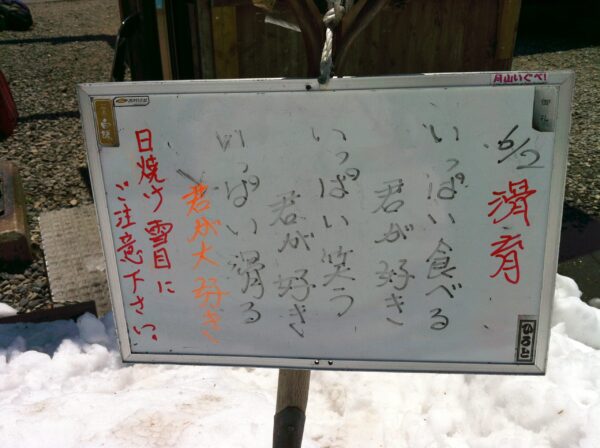 6/2 滑育
いっぱい食べる
君が好き
いっぱい笑う
君が好き
いっぱい滑る
君が大好き
日焼け雪目に
ご注意下さい。
月山いぐべ!
ひろと